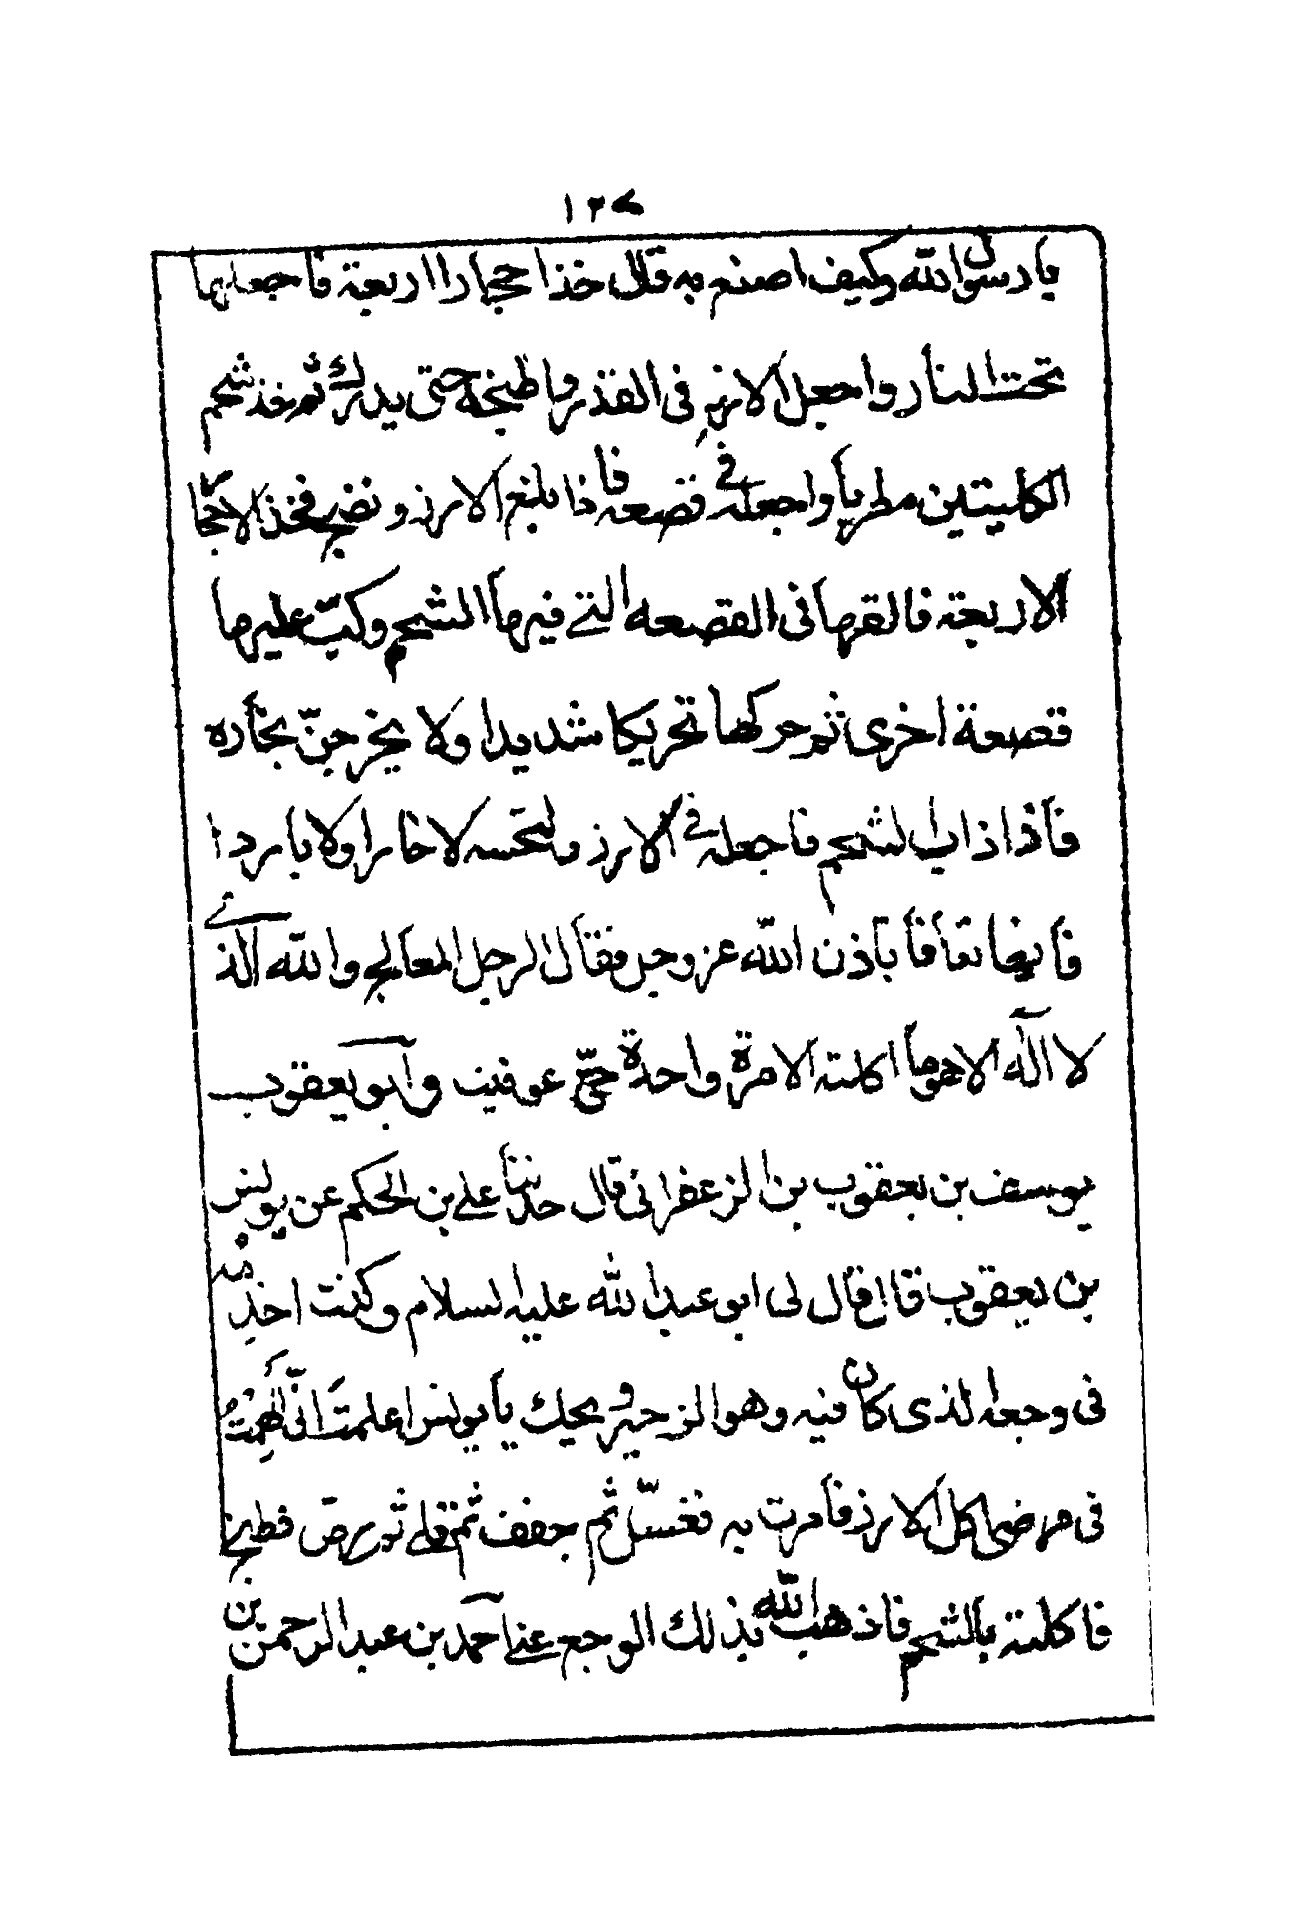 ١٢٧
يا رسول الله وكيف اصنع به قال خذ احجارا اربعة فاجعلها
تحت النار واجعل الارز في القدر واطبخه حتى يدرك ثم خذ شحم
الكليتين طريا واجعله في قصعه فاذا بلغ الارز ونضج فخذ الاحجار
الاربعة فالقها في القصعه التي فيها الشحم وكبّ عليها
قصعة اخرى ثم حركها تحريكا شديدا ولا يخرجنّ بخاره
فاذا ذاب الشحم فاجعله في الارز لتحسه لا حارا ولا باردا
فانها تعافا باذن الله عز وجل فقال الرجل المعالج والله الذي
لا اله الا هو ما اكلته الا مرة واحدة حتّى عوفيت وابو يعقوب
يوسف بن يعقوب بن الزعفراني قال حدثنا علي بن الحكم عن يونس
بن يعقوب قال قال لي ابو عبد الله عليه السلام وكنت اخدمه
في وجعه الذي كان فيه وهو الزحير ويحك يا يونس اعلمت انّي الهمت
في مرضي اكل الارز فامرت به فغسّل ثم جفف ثم قلي ثم رضّ فطبخ
فاكلته بالشحم فاذهب الله بذلك الوجع عني احمد بن عبد الرحمن بن